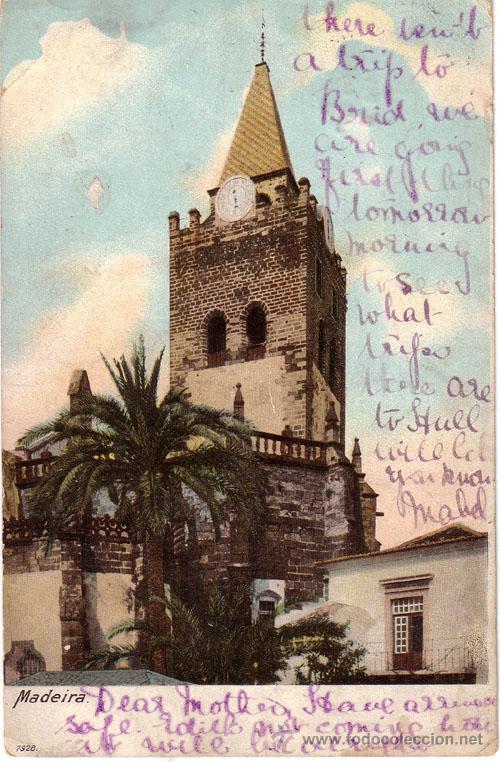 there isn't
a trip to
we
are going
first thing
tomorrow
morning
to see
what
trips
there are
to Hull
will let
you know
Mabel
Madeira.
Dear Mother, Have arrived
safe. not coming
it will be
7928.
www.todocoleccion.net